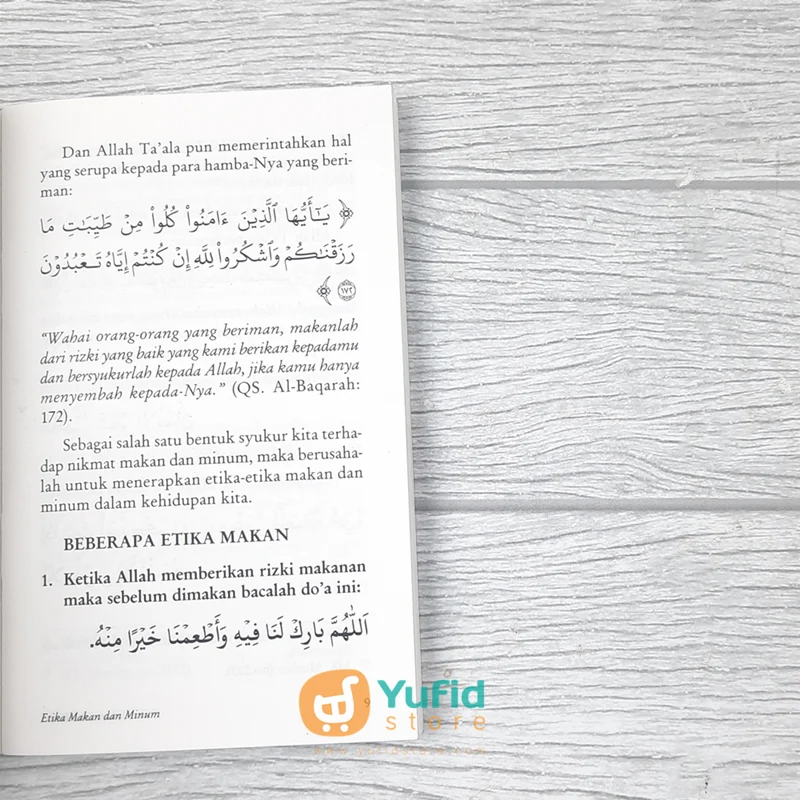 Dan Allah Ta'ala pun memerintahkan hal
yang serupa kepada para hamba-Nya yang beri-
man:
﴿ يَـٰٓأَيُّهَا ٱلَّذِينَ ءَامَنُوا۟ كُلُوا۟ مِنْ طَيِّبَـٰتِ مَا
رَزَقْنَـٰكُمْ وَٱشْكُرُوا۟ لِلَّهِ إِنْ كُنْتُمْ إِيَّاهُ تَعْبُدُوْنَ
١٧٢ ﴾
"Wahai orang-orang yang beriman, makanlah
dari rizki yang baik yang kami berikan kepadamu
dan bersyukurlah kepada Allah, jika kamu hanya
menyembah kepada-Nya." (QS. Al-Baqarah:
172).
Sebagai salah satu bentuk syukur kita terha-
dap nikmat makan dan minum, maka berusaha-
lah untuk menerapkan etika-etika makan dan
minum dalam kehidupan kita.
BEBERAPA ETIKA MAKAN
1. Ketika Allah memberikan rizki makanan
maka sebelum dimakan bacalah do'a ini:
اَللّٰهُمَّ بَارِكْ لَنَا فِيْهِ وَأَطْعِمْنَا خَيْرًا مِنْهُ.
Etika Makan dan Minum
9
Yufid
store